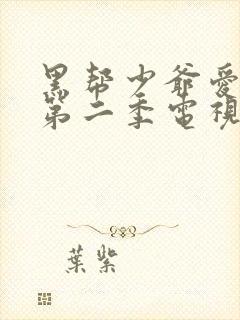 黑帮少爷愛
第二季電視
葉紫